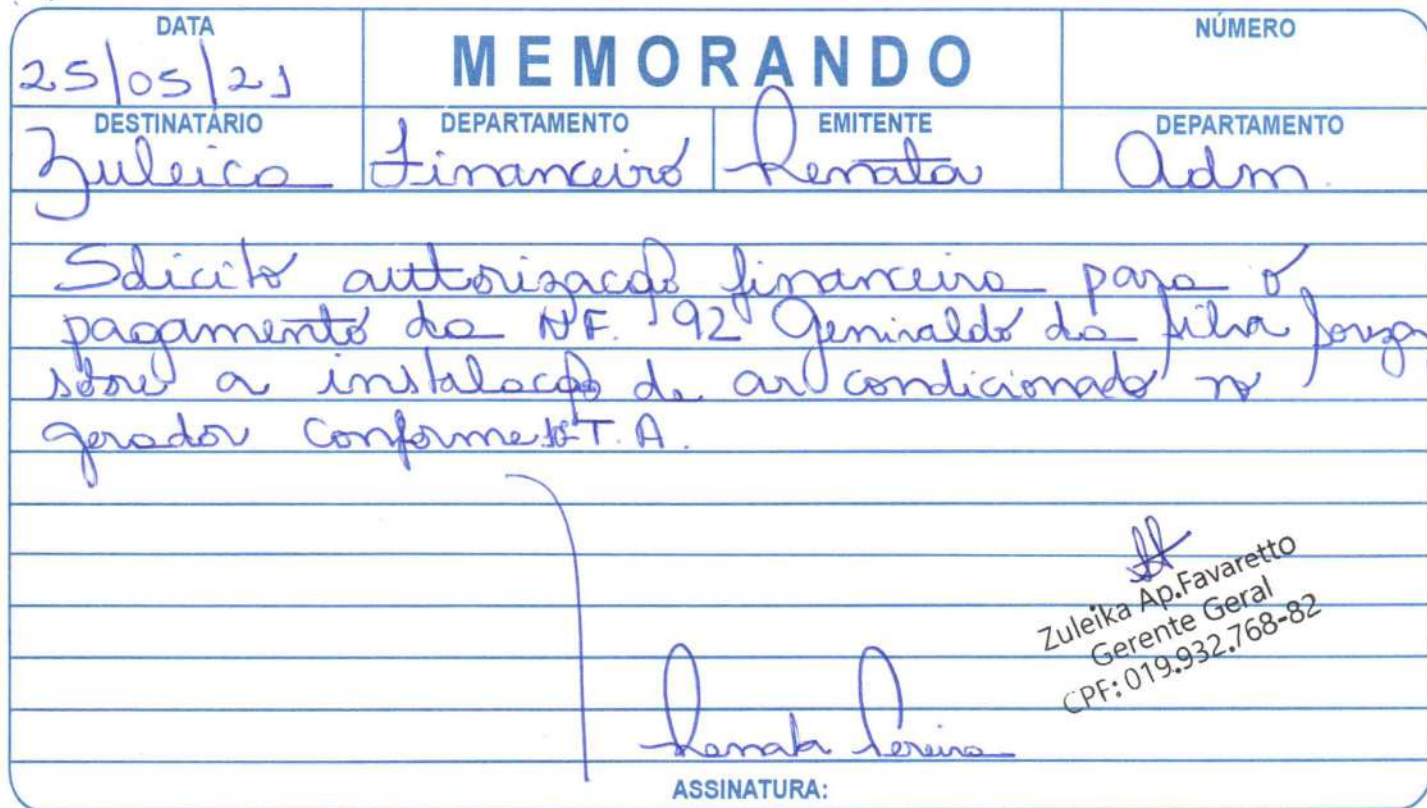 DATA
25/05/21
MEMORANDO
NÚMERO
DESTINATÁRIO
Zuleica
DEPARTAMENTO
Financeiro
EMITENTE
Renata
DEPARTAMENTO
Adm.
Solicito autorização financeira para o
pagamento da NF. 92 Genivaldo da Silva Souza
sobre a instalação de ar condicionado no
gerador conforme T.A.
Zuleika Ap.Favaretto
Gerente Geral
CPF: 019.932.768-82
Renata Pereira
ASSINATURA: